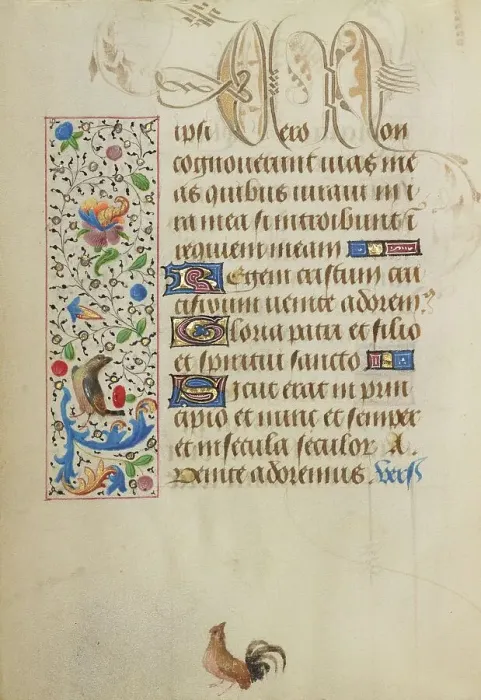 ipsi vero non
cognouerunt uias me
as quibus iuraui in i
ra mea si introibunt ī
requiem meam
Regem cristum cru
cifixum uenite adorem⁹
Gloria patri et filio
et spiritui sancto
Sicut erat in prin
cipio et nunc et semper
et in secula seculor A.
Venite adoremus. Vers